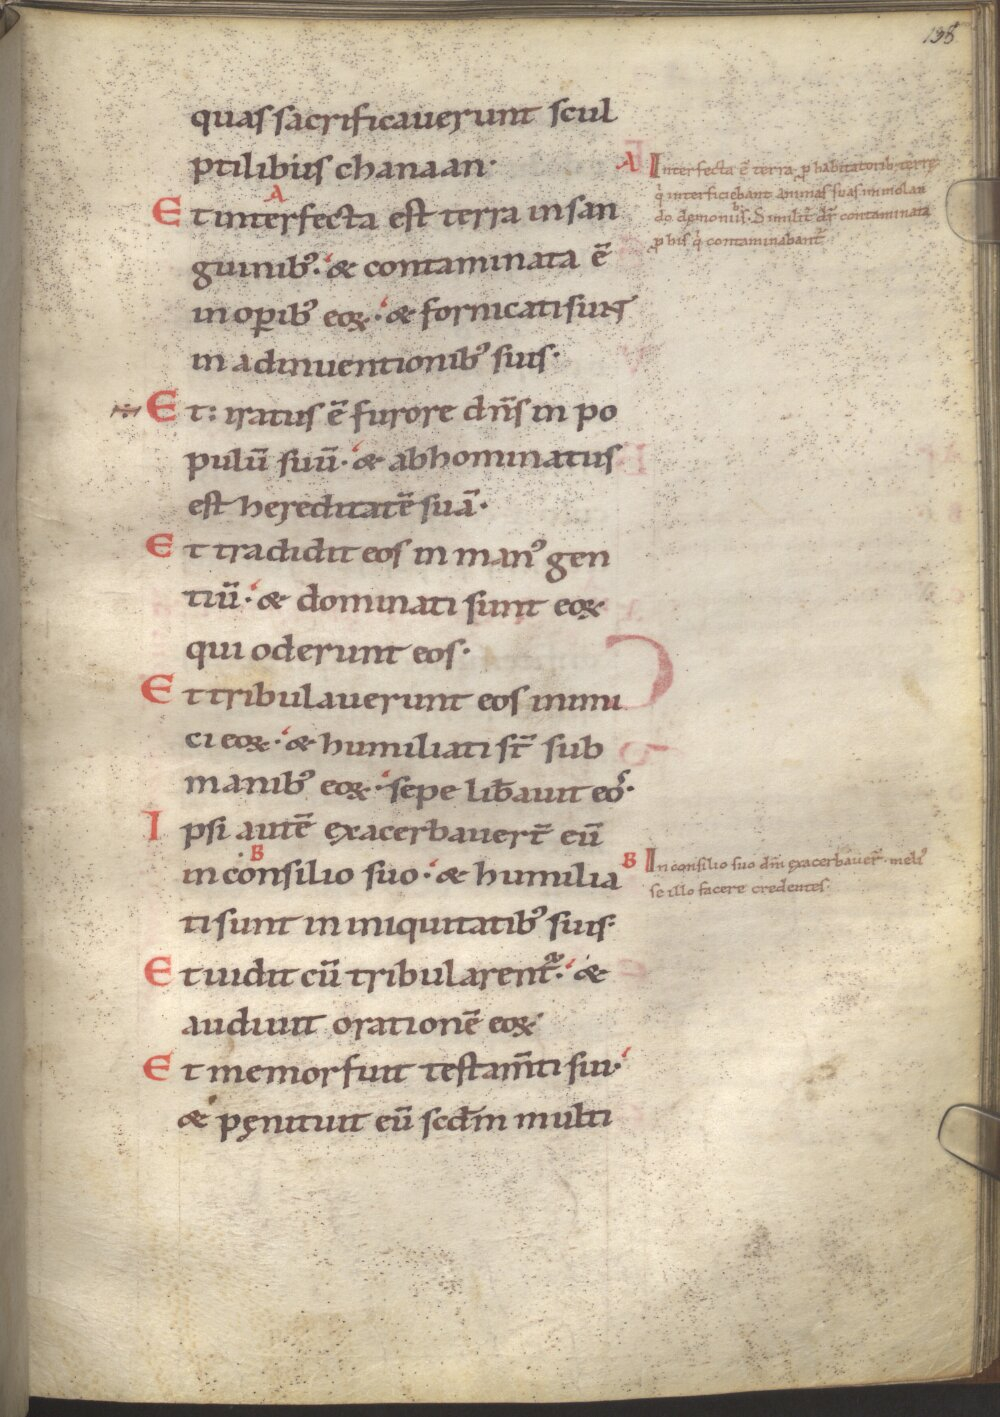 138
quas sacrificauerunt scul
ptilibus chanaan·
A
Et interfecta est terra in san
guinib᾽· & contaminata ē
in opib᾽ eoꝝ· & fornicati sunt
in adinuentionib᾽ suis·
÷ Et: iratus ē furore dn̄s in po
pulū suū· & abhominatus
est hereditatē suā·
Et tradidit eos in man᾽ gen
tiū· & dominati sunt eoꝝ
qui oderunt eos·
Et tribulauerunt eos inimi
ci eoꝝ· & humiliati st̄ sub
manib᾽ eoꝝ· sepe lib̄auit eo᾽s·
Ipsi autē exacerbauert̄ eū
B
in consilio suo· & humilia
ti sunt in iniquitatib᾽ suis·
Et uidit cū tribularent᷑· &
audiuit orationē eoꝝ·
Et memor fuit testam̄ti sui·
& pęnituit eū scd̄m multi
A Interfecta ē terra, ꝓ habitatorib· terrę
q̇ interficiebant animas suas immolan
do demoniis. Similit̄ dr̄ contaminata
ꝓ his q̇ contaminabant᷑
B In consilio suo dm̄ exacerbauer̄· meli᾽
se illo facere credentes·